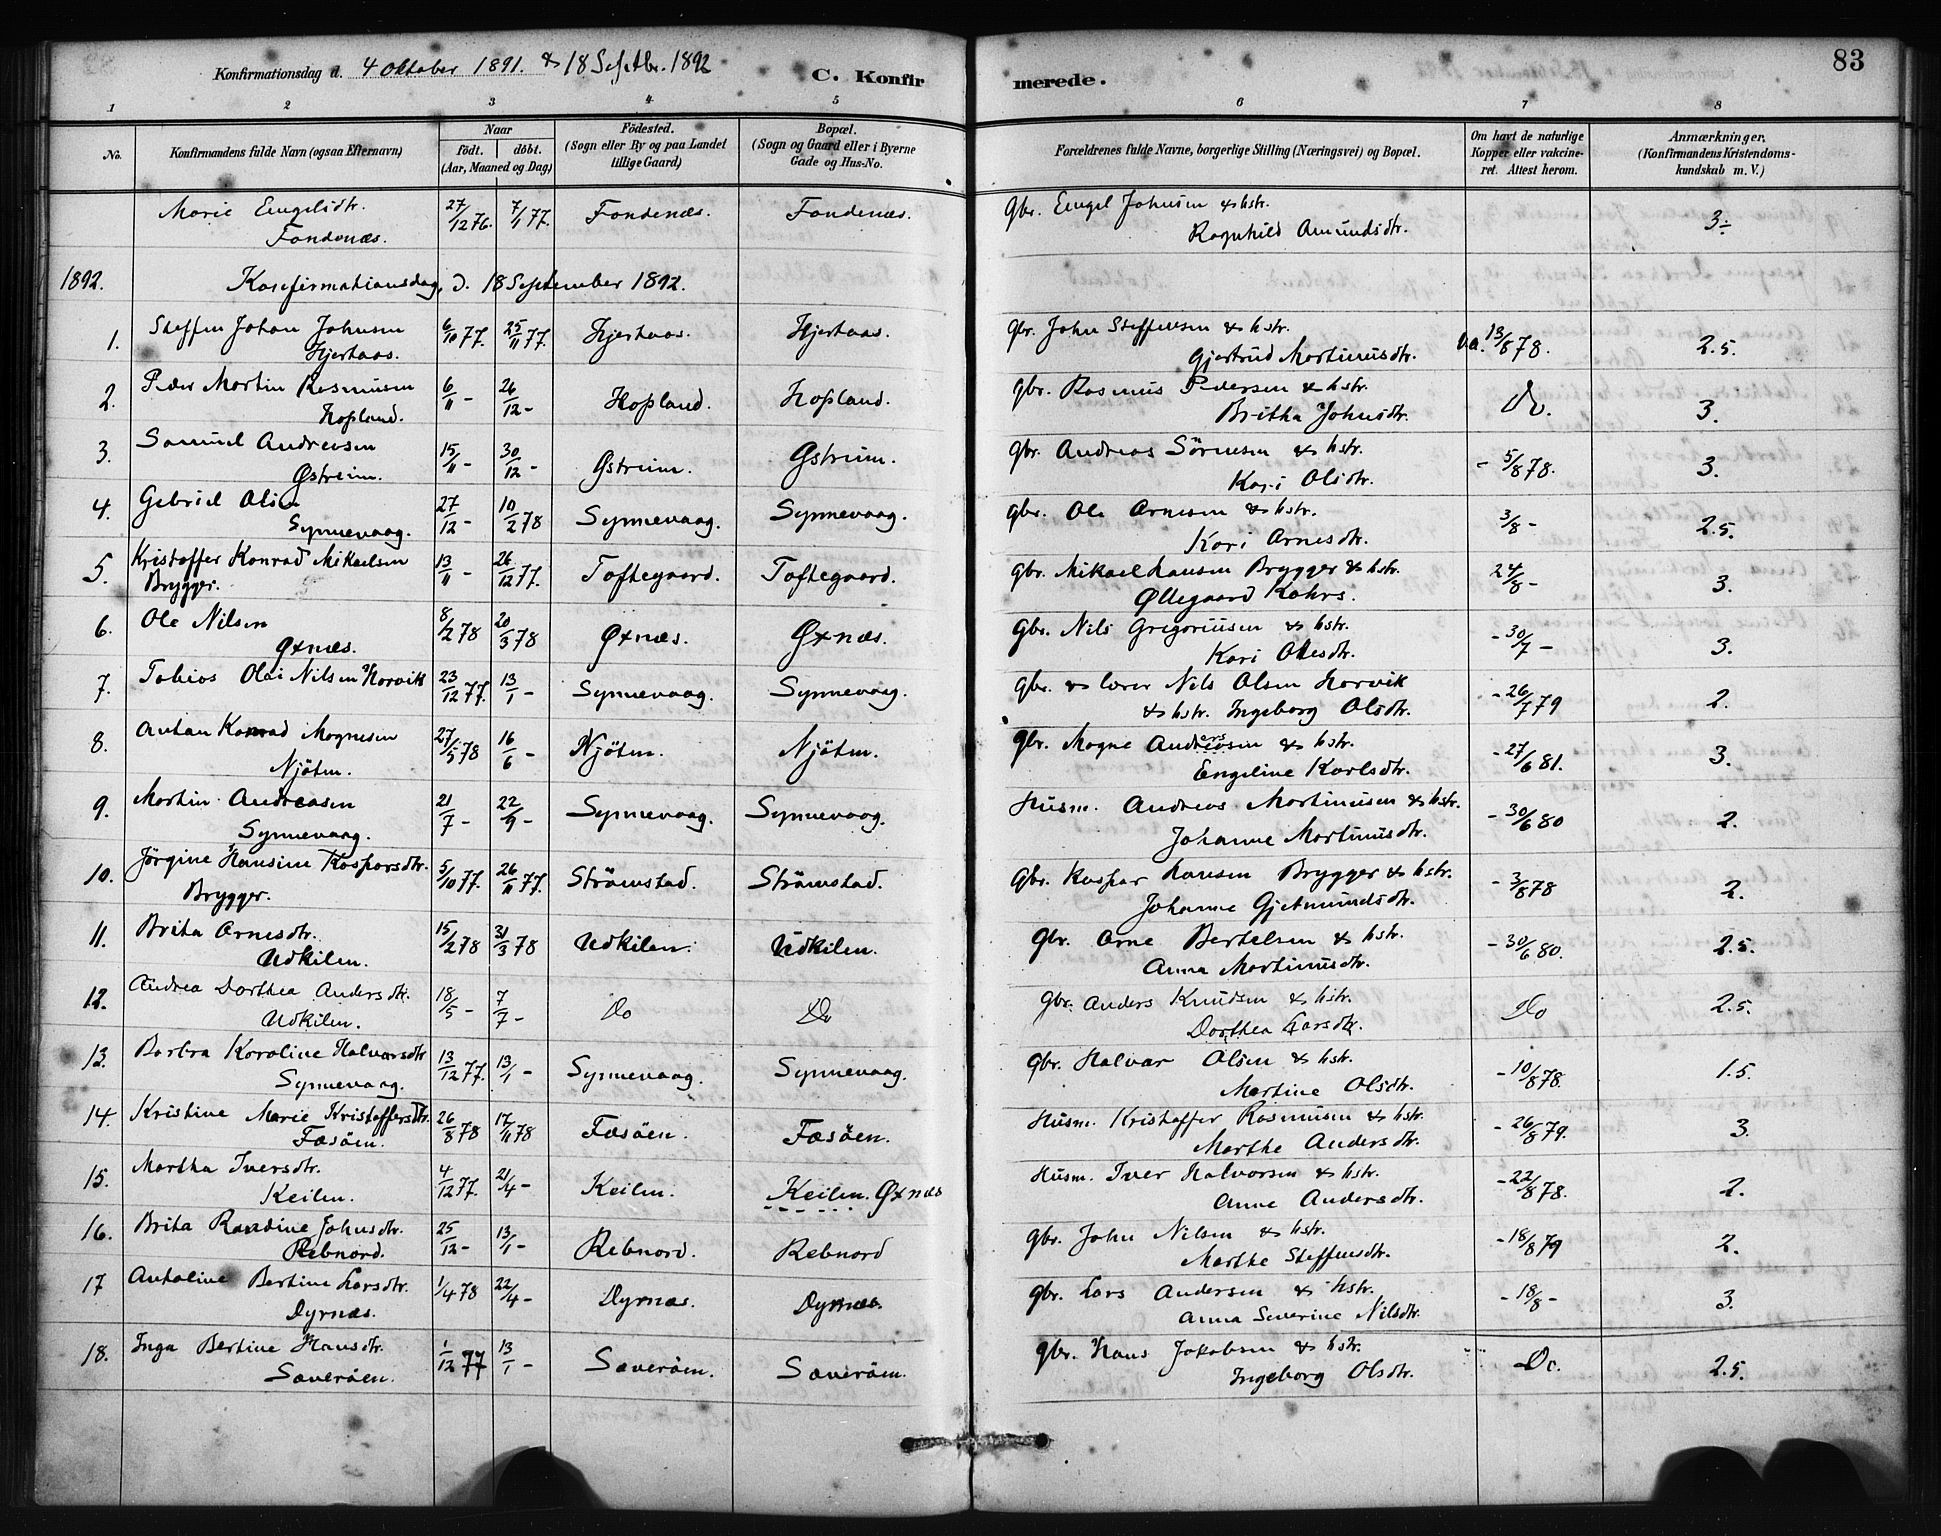 Konfirmationsdag d. 4 Oktober 1891. & 18 Septbr. 1892
C. Konfirmerede.
83
1 2 3 4 5 6 7 8
No.
Konfirmandens fulde Navn (ogsaa Efternavn)
Naar
födt. döbt.
(Aar, Maaned og Dag)
Födested.
(Sogn eller By og paa Landet
tillige Gaard)
Bopæl.
(Sogn og Gaard eller i Byerne
Gade og Hus-No.
Forældrenes fulde Navne, borgerlige Stilling (Næringsvei) og Bopæl.
Om havt de naturlige
Kopper eller vakcine-
ret. Attest herom.
Anmærkninger.
(Konfirmandens Kristendoms-
kundskab m. V.)
Marie Engelsdtr. 27/12 76. 7/1 77. Fondenæs. Fondenæs. Gbr. Engel Johnsen & hstr. 3÷
Fondenæs. Ragnhild Amundsdtr.
1892. Konfirmationsdag, d. 18 September 1892.
1. Steffen Johan Johnsen 6/10 77. 25/11 77. Hjertaas. Hjertaas. Gbr. John Steffensen & hstr. va. 13/8 78. 2.5.
Hjertaas. Gjertrud Mortinusdtr.
2. Peder Martin Rasmusen 6/11 - 26/12 - Hopland. Hopland. Gbr. Rasmus Pedersen & hstr. Do. 3.
Hopland. Britha Johnsdtr.
3. Samuel Andreasen 15/11 - 30/12 - Østreim. Østreim. Gbr. Andreas Sörensen & hstr. - 5/8 78. 3.
Østreim. Kari Olsdtr.
4. Gabriel Olsen 27/12 - 10/2 78 Synnevaag. Synnevaag. Gbr. Ole Arnesen & hstr. 3/8 - 2.5.
Synnevaag. Kari Arnesdtr.
5. Kristoffer Konrad Mikaelsen 13/11 - 26/12 77. Toftegaard. Toftegaard. Gbr. Mikael Hansen Brygger & hstr. 24/8 - 3.
Brygger. Øllegaard Kahrs.
6. Ole Nilsen 8/2 78 20/3 78 Øxnæs. Øxnæs. Gbr. Nils Gregoriusen & hstr. - 30/7 - 3.
Øxnæs. Kari Olesdtr.
7. Tobias Olai Nilsen Horvik 23/12 77. 13/1 - Synnevaag. Synnevaag. Gbr. & lærer Nils Olsen Horvik - 26/7 79 2.
& hstr. Ingeborg Olsdtr.
8. Antan Konrad Mognesen 27/5 78 16/6 - Njöten. Njöten. Gbr. Mogne Andersen & hstr. - 27/6 81. 3.
Njöten. Engeline Karlsdtr.
9. Martin Andreasen 21/7 - 22/9 - Synnevaag. Synnevaag. Husm. Andreas Mortinusen & hstr. - 30/6 80 2.
Synnevaag. Johanne Mortinusdtr.
10. Jörgine Hansine Kasparsdtr. 5/10 77. 26/11 77. Strömstad. Strömstad. Gbr. Kaspar Hansen Brygger & hstr. - 3/8 78 2.
Brygger. Johanne Gjetmundsdtr.
11. Brita Arnesdtr. 15/2 78 31/3 78 Udkilen. Udkilen. Gbr. Arne Bertelsen & hstr. - 30/6 80. 2.5.
Udkilen. Anna Martinusdtr.
12. Andrea Dorthea Andersdtr. 18/5 - 7/7 - Do Do Gbr. Anders Knudsen & hstr. Do 2.5.
Udkilen. Dorthea Larsdtr.
13. Barbra Karoline Halvorsdtr 13/12 77. 13/1 - Synnevaag. Synnevaag. Gbr. Halvar Olsen & hstr. - 10/8 78. 1.5.
Synnevaag. Martine Olsdtr.
14. Kristine Marie Kristoffersdtr. 26/8 78 17/11 78 Fæsöen. Fæsöen. Husm. Kristoffer Rasmusen & hstr. - 26/8 79. 3.
Fæsöen. Marthe Andersdtr.
15. Martha Iversdtr. 4/12 77. 21/4 - Keilen. Keilen. Øxnæs Husm. Iver Halvorsen & hstr. - 22/8 78. 2.
Keilen. Anne Andersdtr.
16. Brita Randine Johnsdtr. 25/12 - 13/1 - Rebnord. Rebnord Gbr. John Nilsen & hstr. - 18/8 79 2.
Rebnord. Marthe Steffensdtr.
17 Antoline Bertine Larsdtr. 1/4 78 22/4 - Dyrnæs. Dyrnæs. Gbr. Lars Andersen & hstr. - 18/8 - 3.
Dyrnæs. Anna Severine Nilsdtr.
18. Inga Bertine Hansdtr. 1/12 77 13/1 - Saveröen. Saveröen. Gbr. Hans Jakobsen & hstr. - Do. 2.5.
Saveröen. Ingeborg Olsdtr.